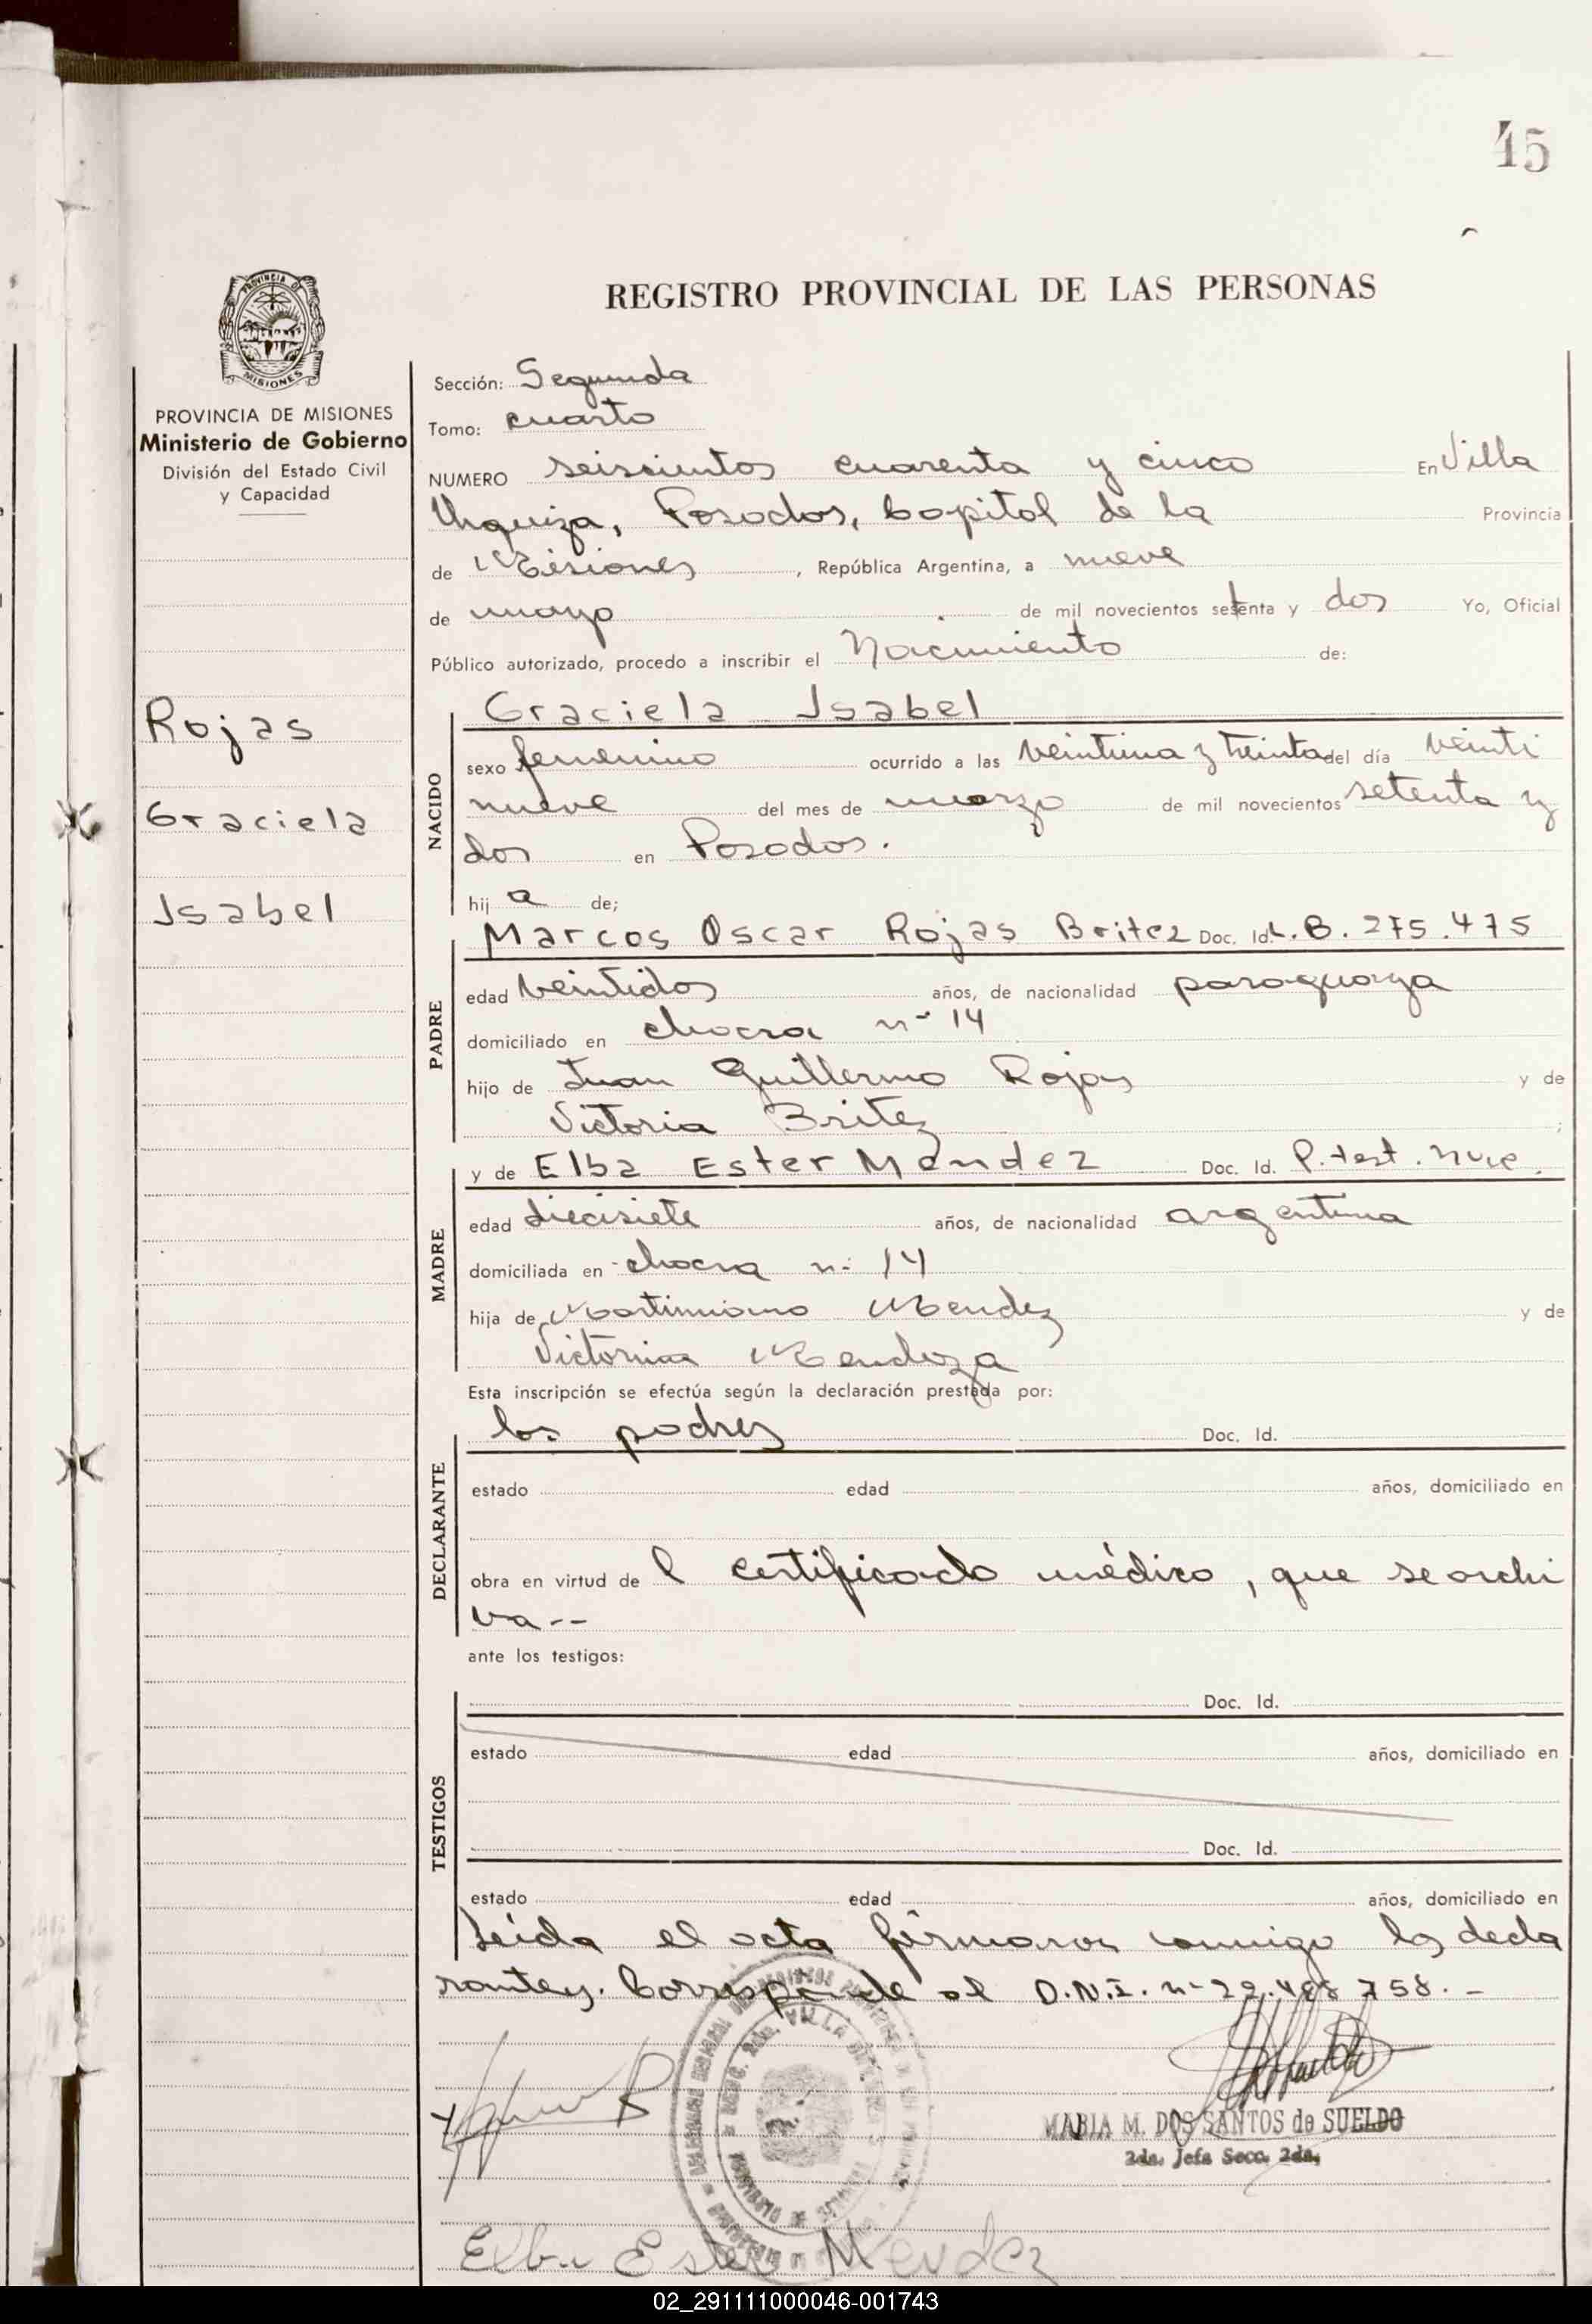 45
REGISTRO PROVINCIAL DE LAS PERSONAS
PROVINCIA DE MISIONES
MISIONES
PROVINCIA DE MISIONES
Ministerio de Gobierno
División del Estado Civil
y Capacidad
Rojas
Graciela
Isabel
Sección: Segunda
Tomo: cuarto
NUMERO seiscientos cuarenta y cinco En Villa
Urquiza, Posadas, Capital de la Provincia
de Misiones, República Argentina, a nueve
de mayo de mil novecientos setenta y dos Yo, Oficial
Público autorizado, procedo a inscribir el Nacimiento de:
NACIDO
Graciela Isabel
sexo femenino ocurrido a las veintiuna y treinta del día veinti
nueve del mes de marzo de mil novecientos setenta y
dos en Posadas.
hij a de;
PADRE
Marcos Oscar Rojas Britez Doc. Id. L.B. 275.475
edad veintidos años, de nacionalidad paraguaya
domiciliado en chacra n- 14
hijo de Juan Guillermo Rojas y de
Victoria Britez ;
MADRE
y de Elba Ester Mendez Doc. Id. P. test. nac.
edad diecisiete años, de nacionalidad argentina
domiciliada en chacra n- 14
hija de Martimiano Mendez y de
Victorina Mendoza
Esta inscripción se efectúa según la declaración prestada por:
DECLARANTE
los padres Doc. Id.
estado edad años, domiciliado en
obra en virtud de l certificado médico, que se archi
va --
ante los testigos:
TESTIGOS
Doc. Id.
estado edad años, domiciliado en
Doc. Id.
estado edad años, domiciliado en
Leída el acta firmaron conmigo los decla
rantes. Corresponde al D.N.I. n- 22.488 758. -
MARIA M. DOS SANTOS de SUELDO
2da. Jefa Secc. 2da.
Elba Ester Mendez
02_291111000046-001743